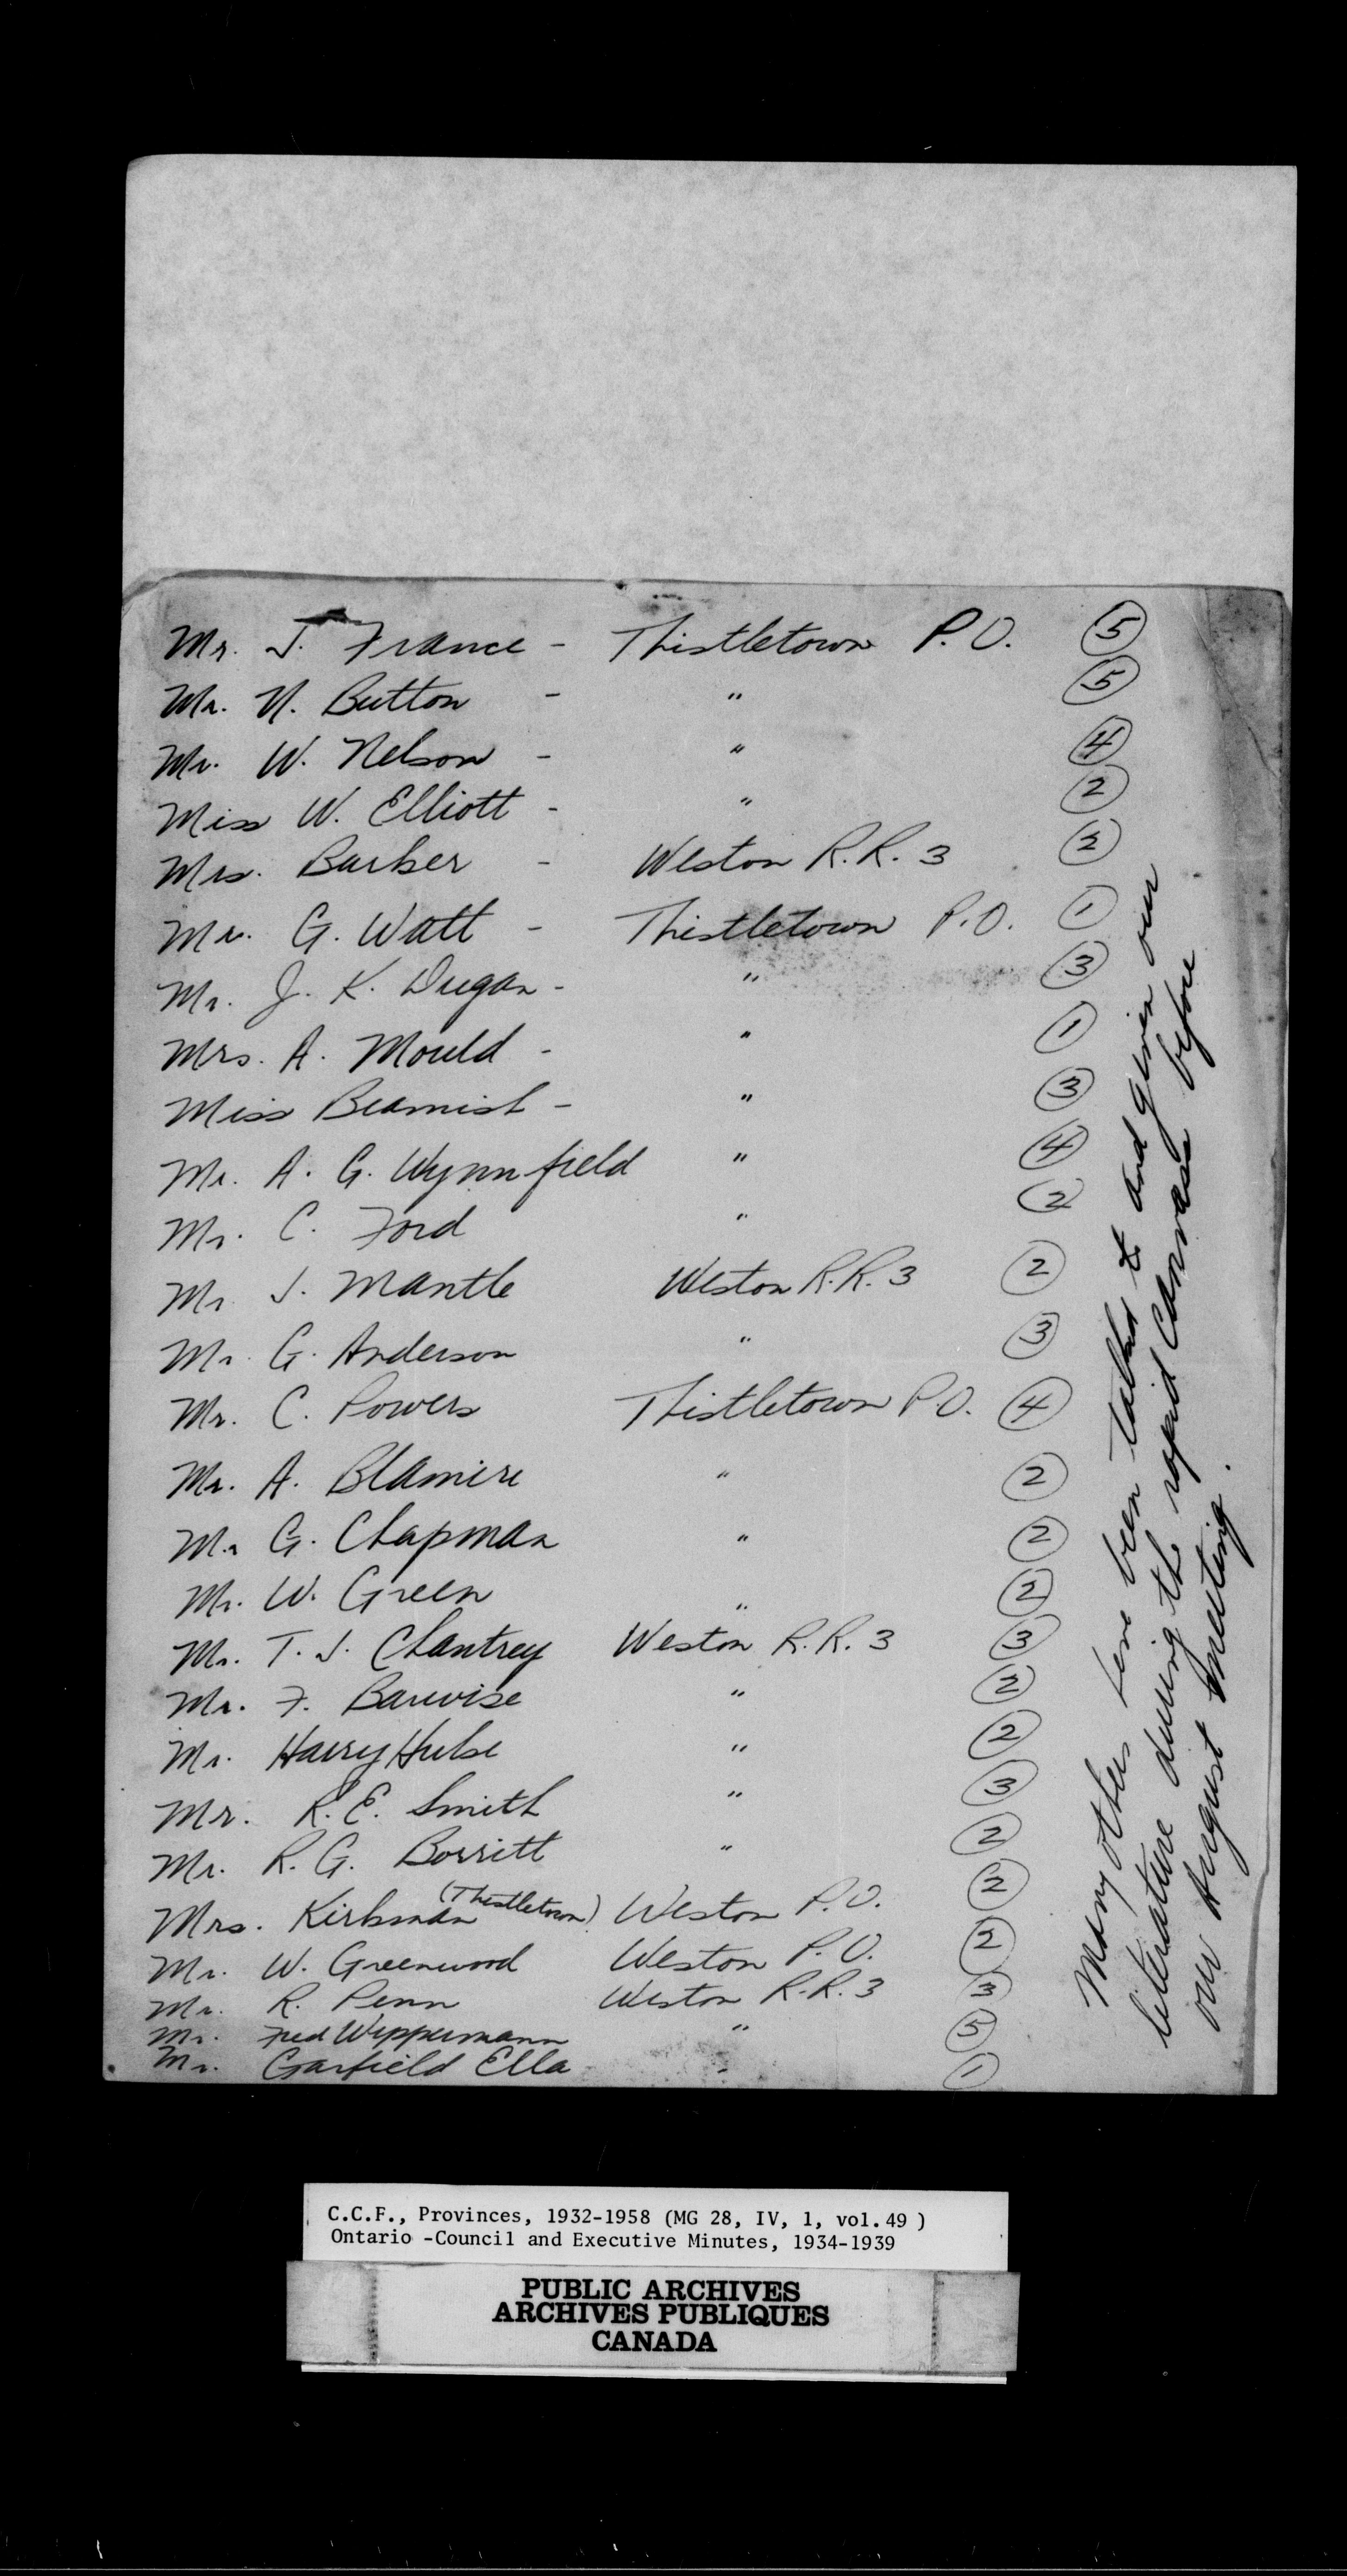 Mr. J. France - Thistletown P.O. 5
Mr. N. Button - " 5
Mr. W. Nelson - " 4
Miss W. Elliott - " 2
Mrs. Barber - Weston R.R. 3 2
Mr. G. Watt - Thistletown P.O. 1
Mr. J. K. Dugan - " 3
Mrs. A. Mould - " 1
Miss Beamish - " 3
Mr. A. G. Wynnfield " 4
Mr. C. Ford " 2
Mr. J. Mantle Weston R.R. 3 2
Mr. G. Anderson " 3
Mr. C. Powers Thistletown P.O. 4
Mr. A. Blamire " 2
Mr. G. Chapman " 2
Mr. W. Green " 2
Mr. T. J. Chantrey Weston R.R. 3 3
Mr. F. Barwise " 2
Mr. Harry Hulse " 2
Mr. R. E. Smith " 3
Mr. R. G. Borritt " 2
Mrs. Kirkman (Thistletown) Weston P.O. 2
Mr. W. Greenwood Weston P.O. 2
Mr. R. Penn Weston R.R. 3 3
Mr. Fred Wippermann " 5
Mr. Garfield Ella " 1
Many others have been talked to and given our
literature during the rapid canvass before
our August meeting.
C.C.F., Provinces, 1932-1958 (MG 28, IV, 1, vol.49 )
Ontario -Council and Executive Minutes, 1934-1939
PUBLIC ARCHIVES
ARCHIVES PUBLIQUES
CANADA